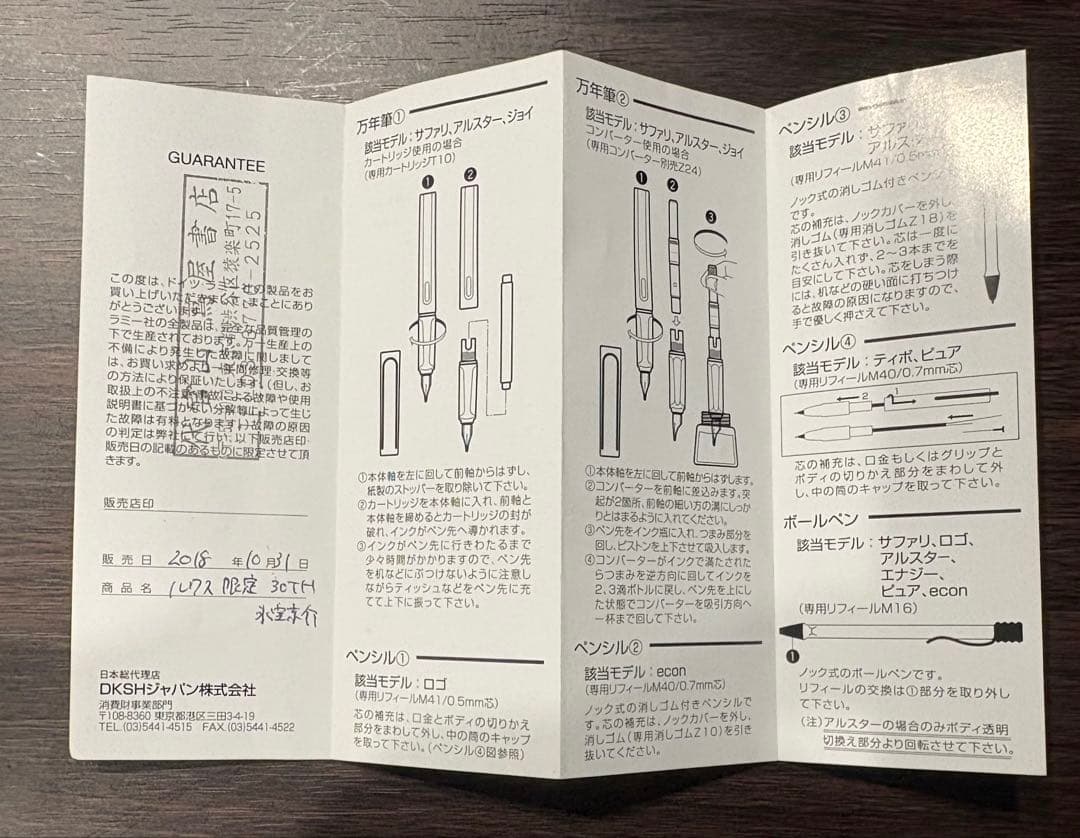 GUARANTEE
書店
猿楽町17-5
2525
この度は、ドイツ 社の製品をお
買い上げいただきまして、まことにあり
がとうございます。
ラミー社の全製品は、完全な品質管理の
下で生産されております。万一生産上の
不備により発生した故障に関しまして
は、お買い求めより一年間修理・交換等
の方法により保証いたします。(但し、お
取扱上の不注意や事故による故障や使用
説明書に基づかない分解等によって生じ
た故障は有料となります。)故障の原因
の判定は弊社にて行い、以下販売店印・
販売日の記載のあるものに限定させて頂
きます。
販売店印
販売日 2018 年 10 月 31 日
商品名 ルクス 限定 30TH
氷室京介
日本総代理店
DKSHジャパン株式会社
消費財事業部門
〒108-8360 東京都港区三田3-4-19
TEL.(03)5441-4515 FAX.(03)5441-4522
万年筆①
該当モデル:サファリ、アルスター、ジョイ
カートリッジ使用の場合
(専用カートリッジT10)
❶ ❷
①本体軸を左に回して前軸からはずし、
紙製のストッパーを取り除いて下さい。
②カートリッジを本体軸に入れ、前軸と
本体軸を締めるとカートリッジの封が
破れ、インクがペン先へ導かれます。
③インクがペン先に行きわたるまで
少々時間がかかりますので、ペン先
を机などにぶつけないように注意し
ながらティッシュなどをペン先に充
てて上下に振って下さい。
ペンシル①
該当モデル:ロゴ
(専用リフィールM41/0.5mm芯)
芯の補充は、口金とボディの切りかえ
部分をまわして外し、中の筒のキャップ
を取って下さい。(ペンシル④図参照)
万年筆②
該当モデル:サファリ、アルスター、ジョイ
コンバーター使用の場合
(専用コンバーター別売Z24)
❶ ❷ ❸
①本体軸を左に回して前軸からはずします。
②コンバーターを前軸に差込みます。突
起が2箇所、前軸の細い方の溝にしっか
りとはまるように入れてください。
③ペン先をインク瓶に入れ、つまみ部分を
回し、ピストンを上下させて吸入します。
④コンバーターがインクで満たされた
らつまみを逆方向に回してインクを
2、3滴ボトルに戻し、ペン先を上にし
た状態でコンバーターを吸引方向へ
一杯まで回して下さい。
ペンシル②
該当モデル:econ
(専用リフィールM40/0.7mm芯)
ノック式の消しゴム付きペンシルで
す。芯の補充は、ノックカバーを外し、
消しゴム(専用消しゴムZ10)を引き
抜いてください。
ペンシル③
該当モデル:サファリ、
アルスター
(専用リフィールM41/0.5mm
ノック式の消しゴム付きペンシル
です。
芯の補充は、ノックカバーを外し、
消しゴム(専用消しゴムZ18)を
引き抜いて下さい。芯は一度に
たくさん入れず、2~3本までを
目安にして下さい。芯をしまう際
には、机などの硬い面に打ちつけ
ると故障の原因になりますので、
手で優しく押さえて下さい。
ペンシル④
該当モデル:ティポ、ピュア
(専用リフィールM40/0.7mm芯)
2 1
芯の補充は、口金もしくはグリップと
ボディの切りかえ部分をまわして外
し、中の筒のキャップを取って下さい。
ボールペン
該当モデル:サファリ、ロゴ、
アルスター、
エナジー、
ピュア、econ
(専用リフィールM16)
❶
ノック式のボールペンです。
リフィールの交換は①部分を取り外し
て下さい。
(注)アルスターの場合のみボディ透明
切換え部分より回転させて下さい。